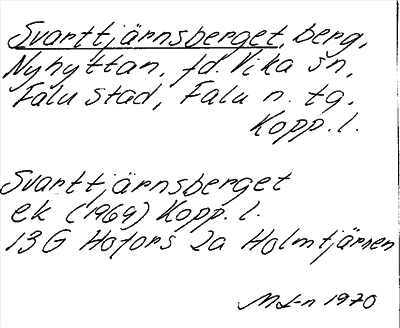 Svarttjärnsberget, berg,
Nyhyttan, fd. Vika sn,
Falu stad, Falu n. tg.
Kopp. l.
Svarttjärnsberget
ek (1969) Kopp. l.
13G Hofors 2a Holmtjärnen
ML-n 1970